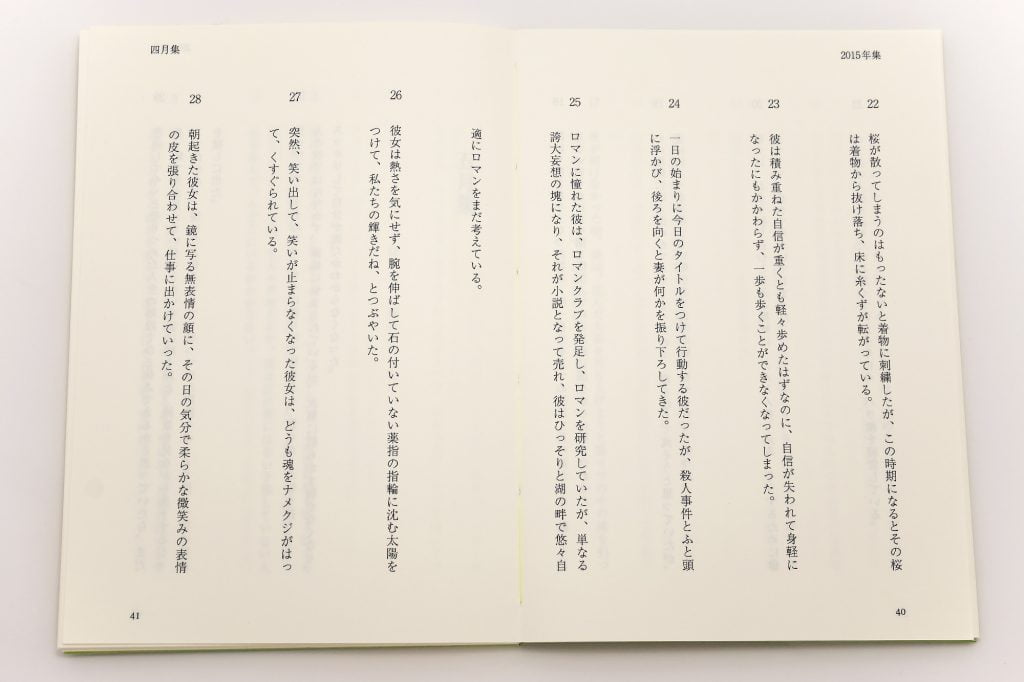 2015年集
22
桜が散ってしまうのはもったないと着物に刺繍したが、この時期になるとその桜
は着物から抜け落ち、床に糸くずが転がっている。
23
彼は積み重ねた自信が重くとも軽々歩めたはずなのに、自信が失われて身軽に
なったにもかかわらず、一歩も歩くことができなくなってしまった。
24
一日の始まりに今日のタイトルをつけて行動する彼だったが、殺人事件とふと頭
に浮かび、後ろを向くと妻が何かを振り下ろしてきた。
25
ロマンに憧れた彼は、ロマンクラブを発足し、ロマンを研究していたが、単なる
誇大妄想の塊になり、それが小説となって売れ、彼はひっそりと湖の畔で悠々自
40
四月集
適にロマンをまだ考えている。
26
彼女は熱さを気にせず、腕を伸ばして石の付いていない薬指の指輪に沈む太陽を
つけて、私たちの輝きだね、とつぶやいた。
27
突然、笑い出して、笑いが止まらなくなった彼女は、どうも魂をナメクジがはっ
て、くすぐられている。
28
朝起きた彼女は、鏡に写る無表情の顔に、その日の気分で柔らかな微笑みの表情
の皮を張り合わせて、仕事に出かけていった。
41